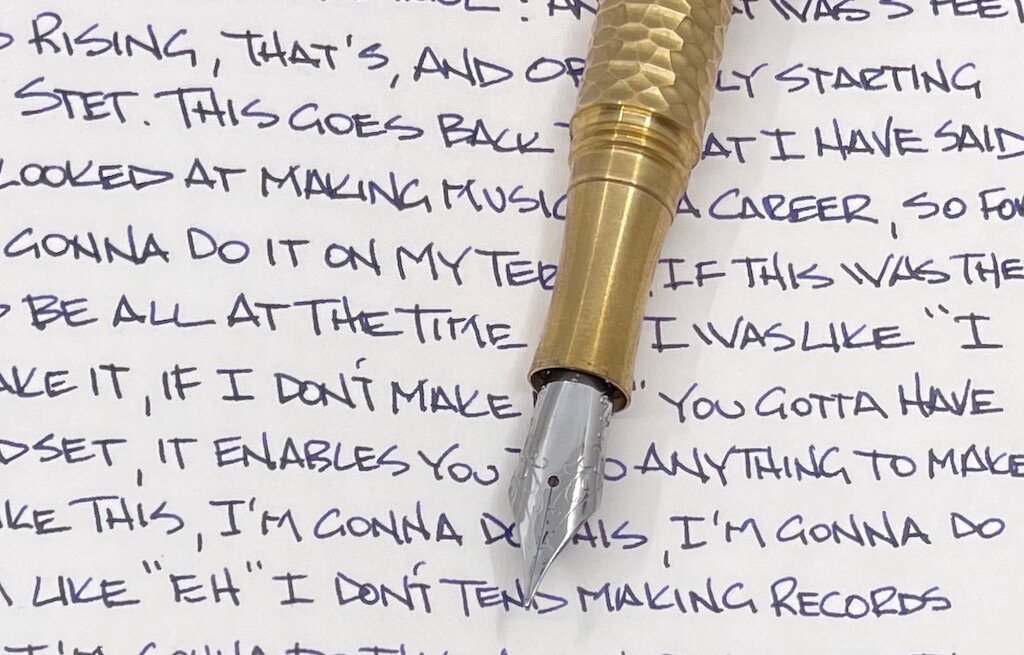 RISING, THAT'S, AND STARTING
STET. THIS GOES BACK I HAVE SAID
LOOKED AT MAKING MUSIC A CAREER, SO
GONNA DO IT ON MY . IF THIS WAS THE
BE ALL AT THE TIME I WAS LIKE "I
IT, IF I DON'T MAKE " YOU GOTTA HAVE
IT ENABLES YOU ANYTHING TO MAKE
THIS, I'M GONNA DO , I'M GONNA DO
LIKE "EH" I DON'T TEND MAKING RECORDS